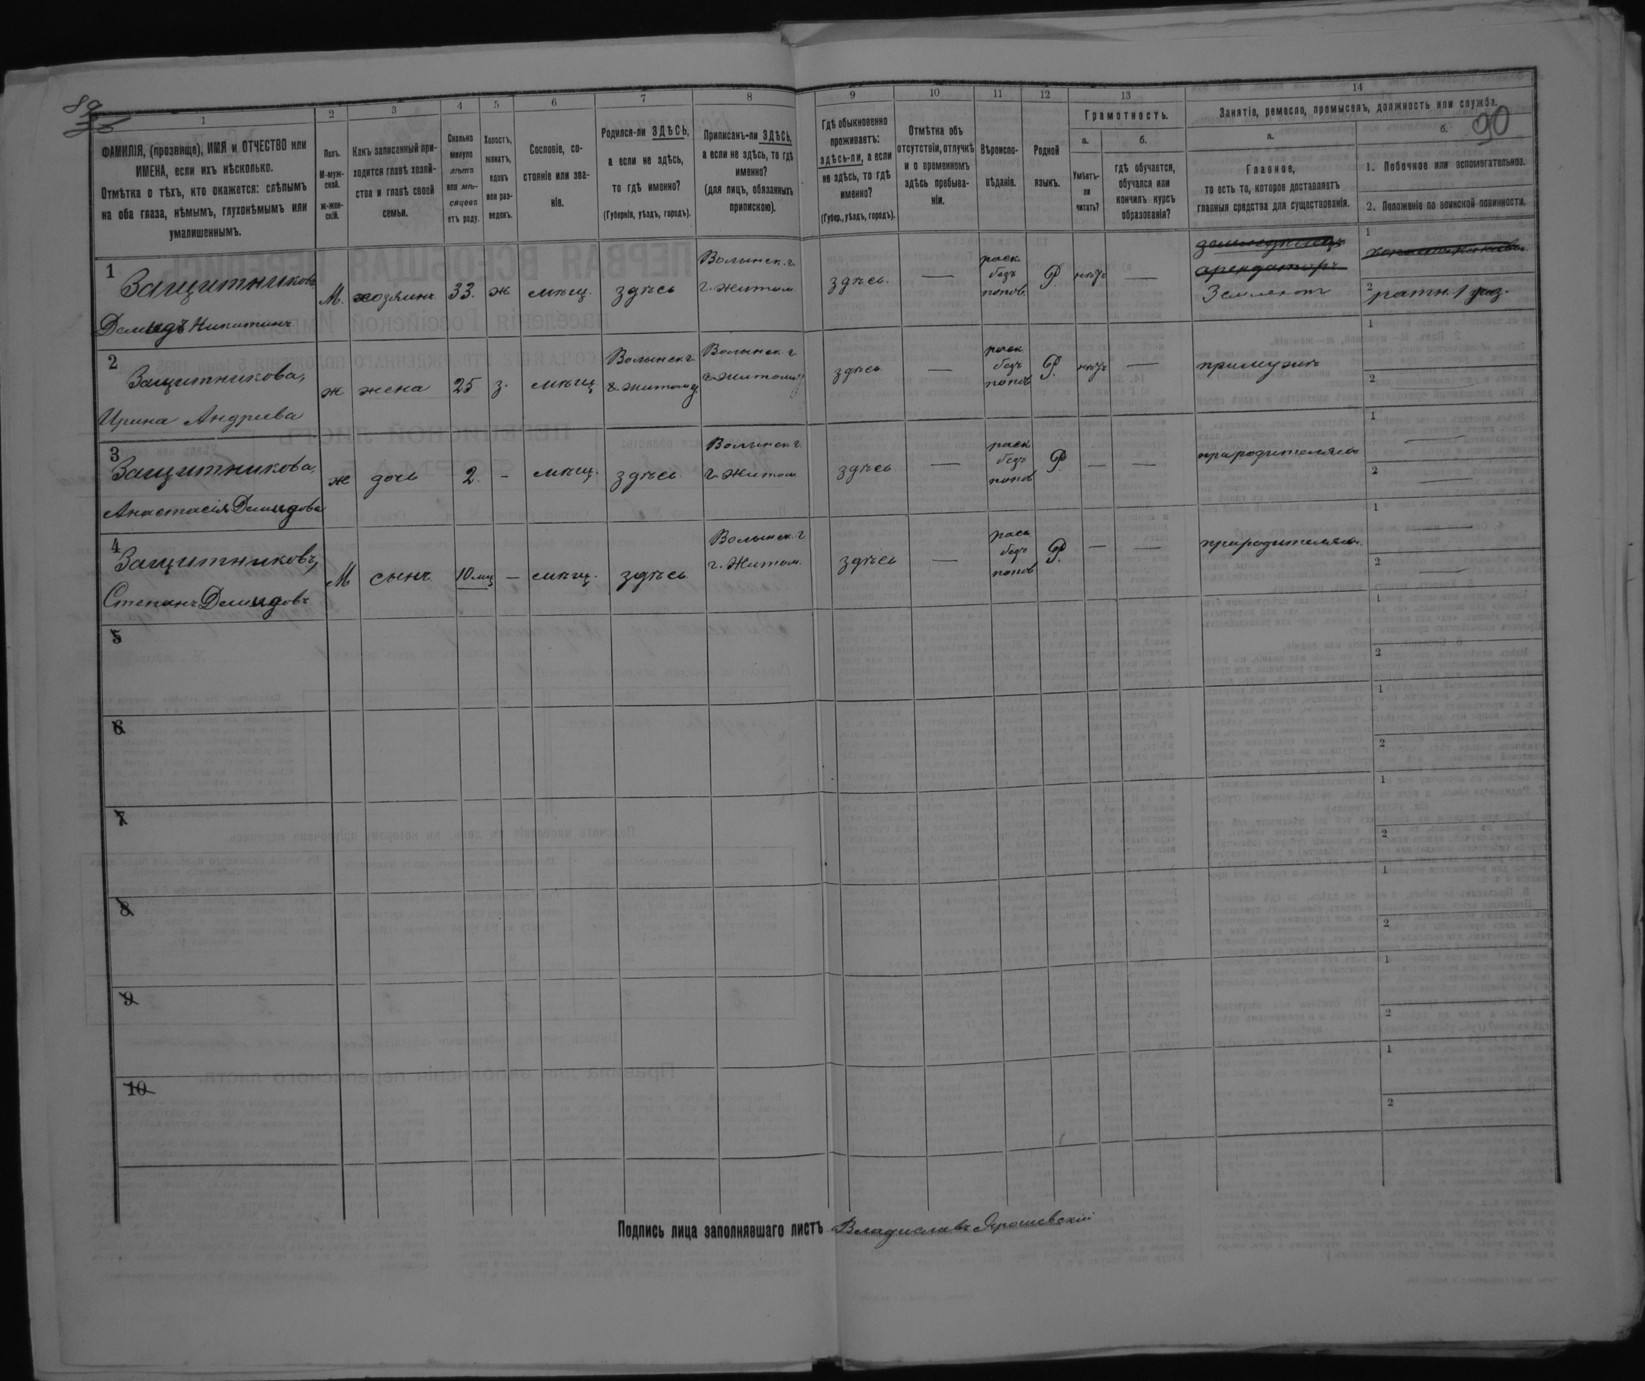 89
90
1 2 3 4 5 6 7 8 9 10 11 12 13 14
ФАМИЛІЯ, (прозвище), ИМЯ и ОТЧЕСТВО или
ИМЕНА, если ихъ нѣсколько.
Отмѣтка о тѣхъ, кто окажется: слѣпымъ
на оба глаза, нѣмымъ, глухонѣмымъ или
умалишеннымъ.
Полъ.
М-муж-
ской.
ж-жен-
скій.
Какъ записанный при-
ходится главѣ хозяй-
ства и главѣ своей
семьи.
Сколько
минуло
лѣтъ
или мѣ-
сяцевъ
отъ роду.
Холостъ,
женатъ,
вдовъ
или раз-
веденъ.
Сословіе, со-
стояніе или зва-
ніе.
Родился-ли ЗДѢСЬ,
а если не здѣсь,
то гдѣ именно?
(Губернія, уѣздъ, городъ).
Приписанъ-ли ЗДѢСЬ,
а если не здѣсь, то гдѣ
именно?
(для лицъ, обязанныхъ
припискою).
Гдѣ обыкновенно
проживаетъ:
здѣсь-ли, а если
не здѣсь, то гдѣ
именно?
(Губер., уѣздъ, городъ).
Отмѣтка объ
отсутствіи, отлучкѣ
и о временномъ
здѣсь пребыва-
ніи.
Вѣроиспо-
вѣданіе.
Родной
языкъ.
Грамотность.
а.
Умѣетъ-
ли
читать?
б.
гдѣ обучается,
обучался или
кончилъ курсъ
образованія?
Занятіе, ремесло, промыселъ, должность или служба.
а.
Главное,
то есть то, которое доставляетъ
главныя средства для существованія.
б.
1. Побочное или вспомогательное.
2. Положеніе по воинской повинности.
1
Защитниковъ
Демидъ Никитинъ
М. хозяинъ 33. ж мѣщ. здѣсь
Волынск. г.
г. Житом.
здѣсь. —
раск.
безъ
попов.
Р нѣтъ —
земледѣлецъ
арендаторъ
1
2 ратн. 1 раз.
2
Защитникова,
Ирина Андреева
ж жена 25 з. мѣщ.
Волынск. г.
г. Житомір.
Волынск. г.
г. Житомір
здѣсь —
раск
безъ
попов
Р. нѣтъ —
при мужѣ
1
2 —
3
Защитникова,
Анастасія Демидова
ж дочь 2. - мѣщ. здѣсь
Волынск. г.
г. Житом.
здѣсь —
раск
безъ
попов
Р — —
при родителяхъ
1 —
2 —
4
Защитниковъ,
Степанъ Демидовъ
М сынъ 10 мц — мѣщ. здѣсь
Волынск. г.
г. Житом.
здѣсь —
раск
безъ
попов
Р. — —
при родителяхъ
1 —
2 —
5 1
2
6 1
2
7 1
2
8 1
2
9 1
2
10 1
2
Подпись лица заполнявшаго листъ Владиславъ Ярошевскій